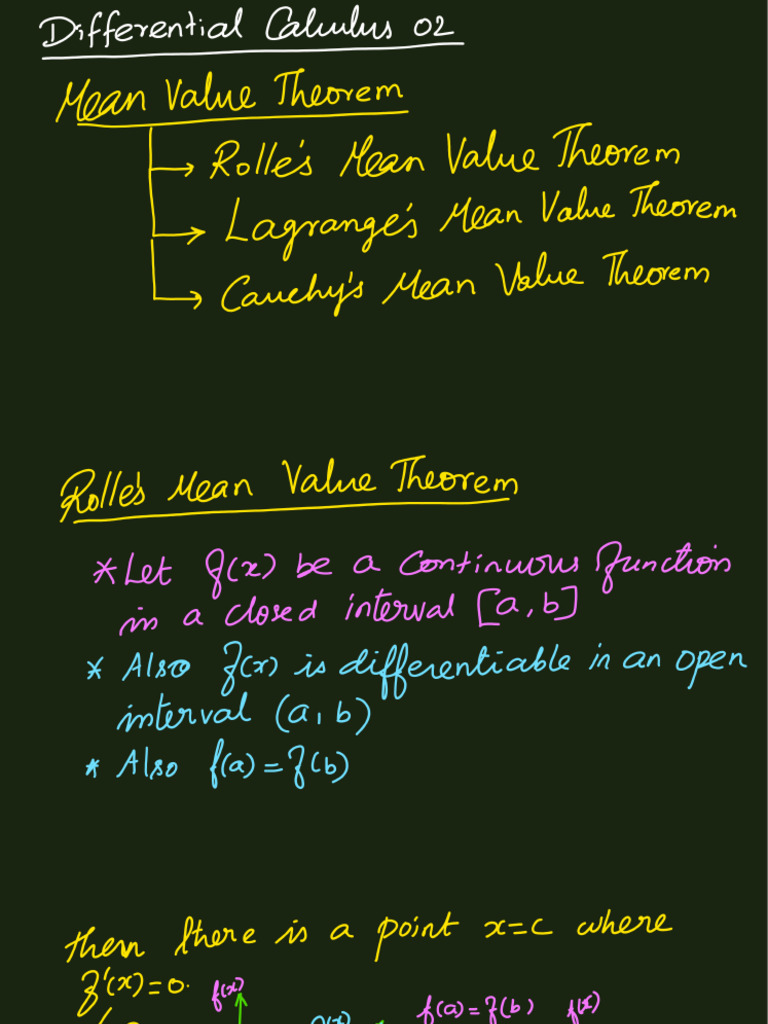 Differential Calculus 02
Mean Value Theorem
→ Rolle's Mean Value Theorem
→ Lagrange's Mean Value Theorem
→ Cauchy's Mean Value Theorem
Rolle's Mean Value Theorem
* Let f(x) be a continuous function
in a closed interval [a,b]
* Also f(x) is differentiable in an open
interval (a,b)
* Also f(a)=f(b)
then there is a point x=c where
f'(x)=0. f(x)
f(a)=f(b) f(x)